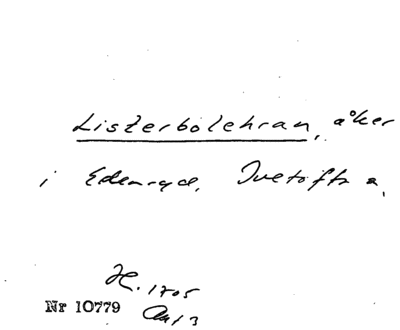 Listerbolehran, åker
i Edenryd, Ivetofta s.
H. 1705
Nr 10779